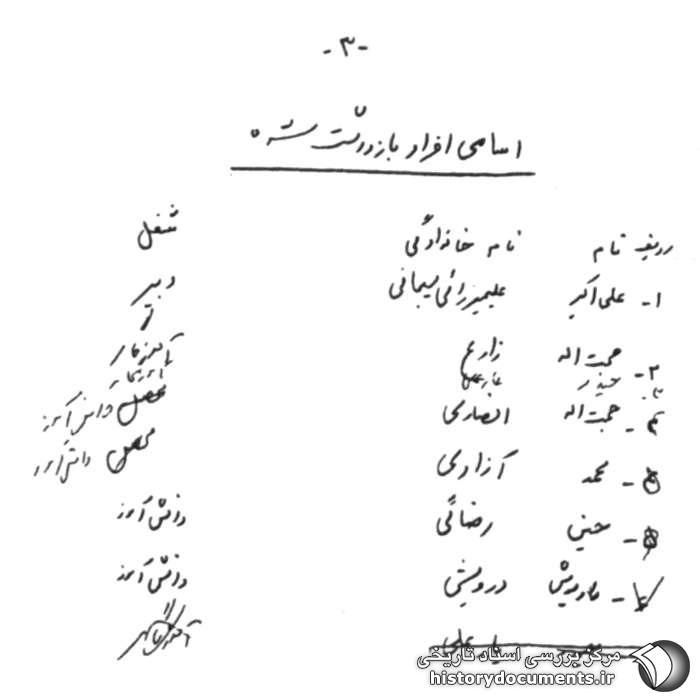 -۳-
اسامی افراد بازداشت شده
ردیف نام نام خانوادگی شغل
۱- علی اکبر علیمیرزائی دبیر
۲- حجت اله زارع آموزگار
۴- حجت اله انصاری محصل دانش آموز
محمد آزادی محصل دانش آموز
حسین رضائی دانش آموز
درویشی دانش آموز
مرکز بررسی اسناد تاریخی
historydocuments.ir